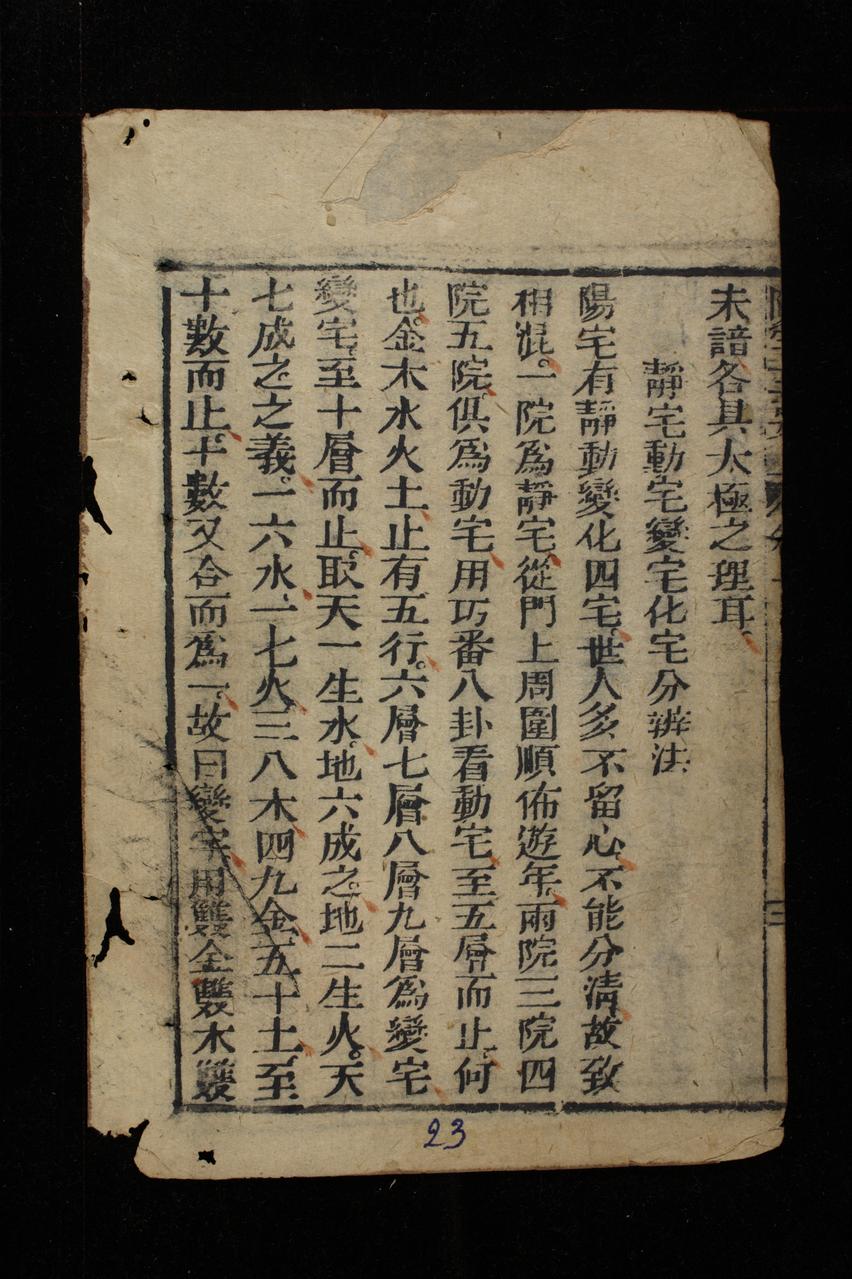 未諳各具太極之理耳
靜宅動宅變宅化宅分辨法
陽宅有靜動變化四宅世人多不留心不能分清故致
相混。一院為靜宅從門上周圍順佈遊年。兩院三院四
院五院俱為動宅用巧番八卦看動宅至五層而止何
也。金木水火土止有五行。六層七層八層九層為變宅
變宅至十層而止。取天一生水。地六成之。地二生火。天
七成之之義。一六水二七火三八木四九金五十土。至
十數而止。十數又合而為一。故曰變宅用雙金雙木雙
三
23